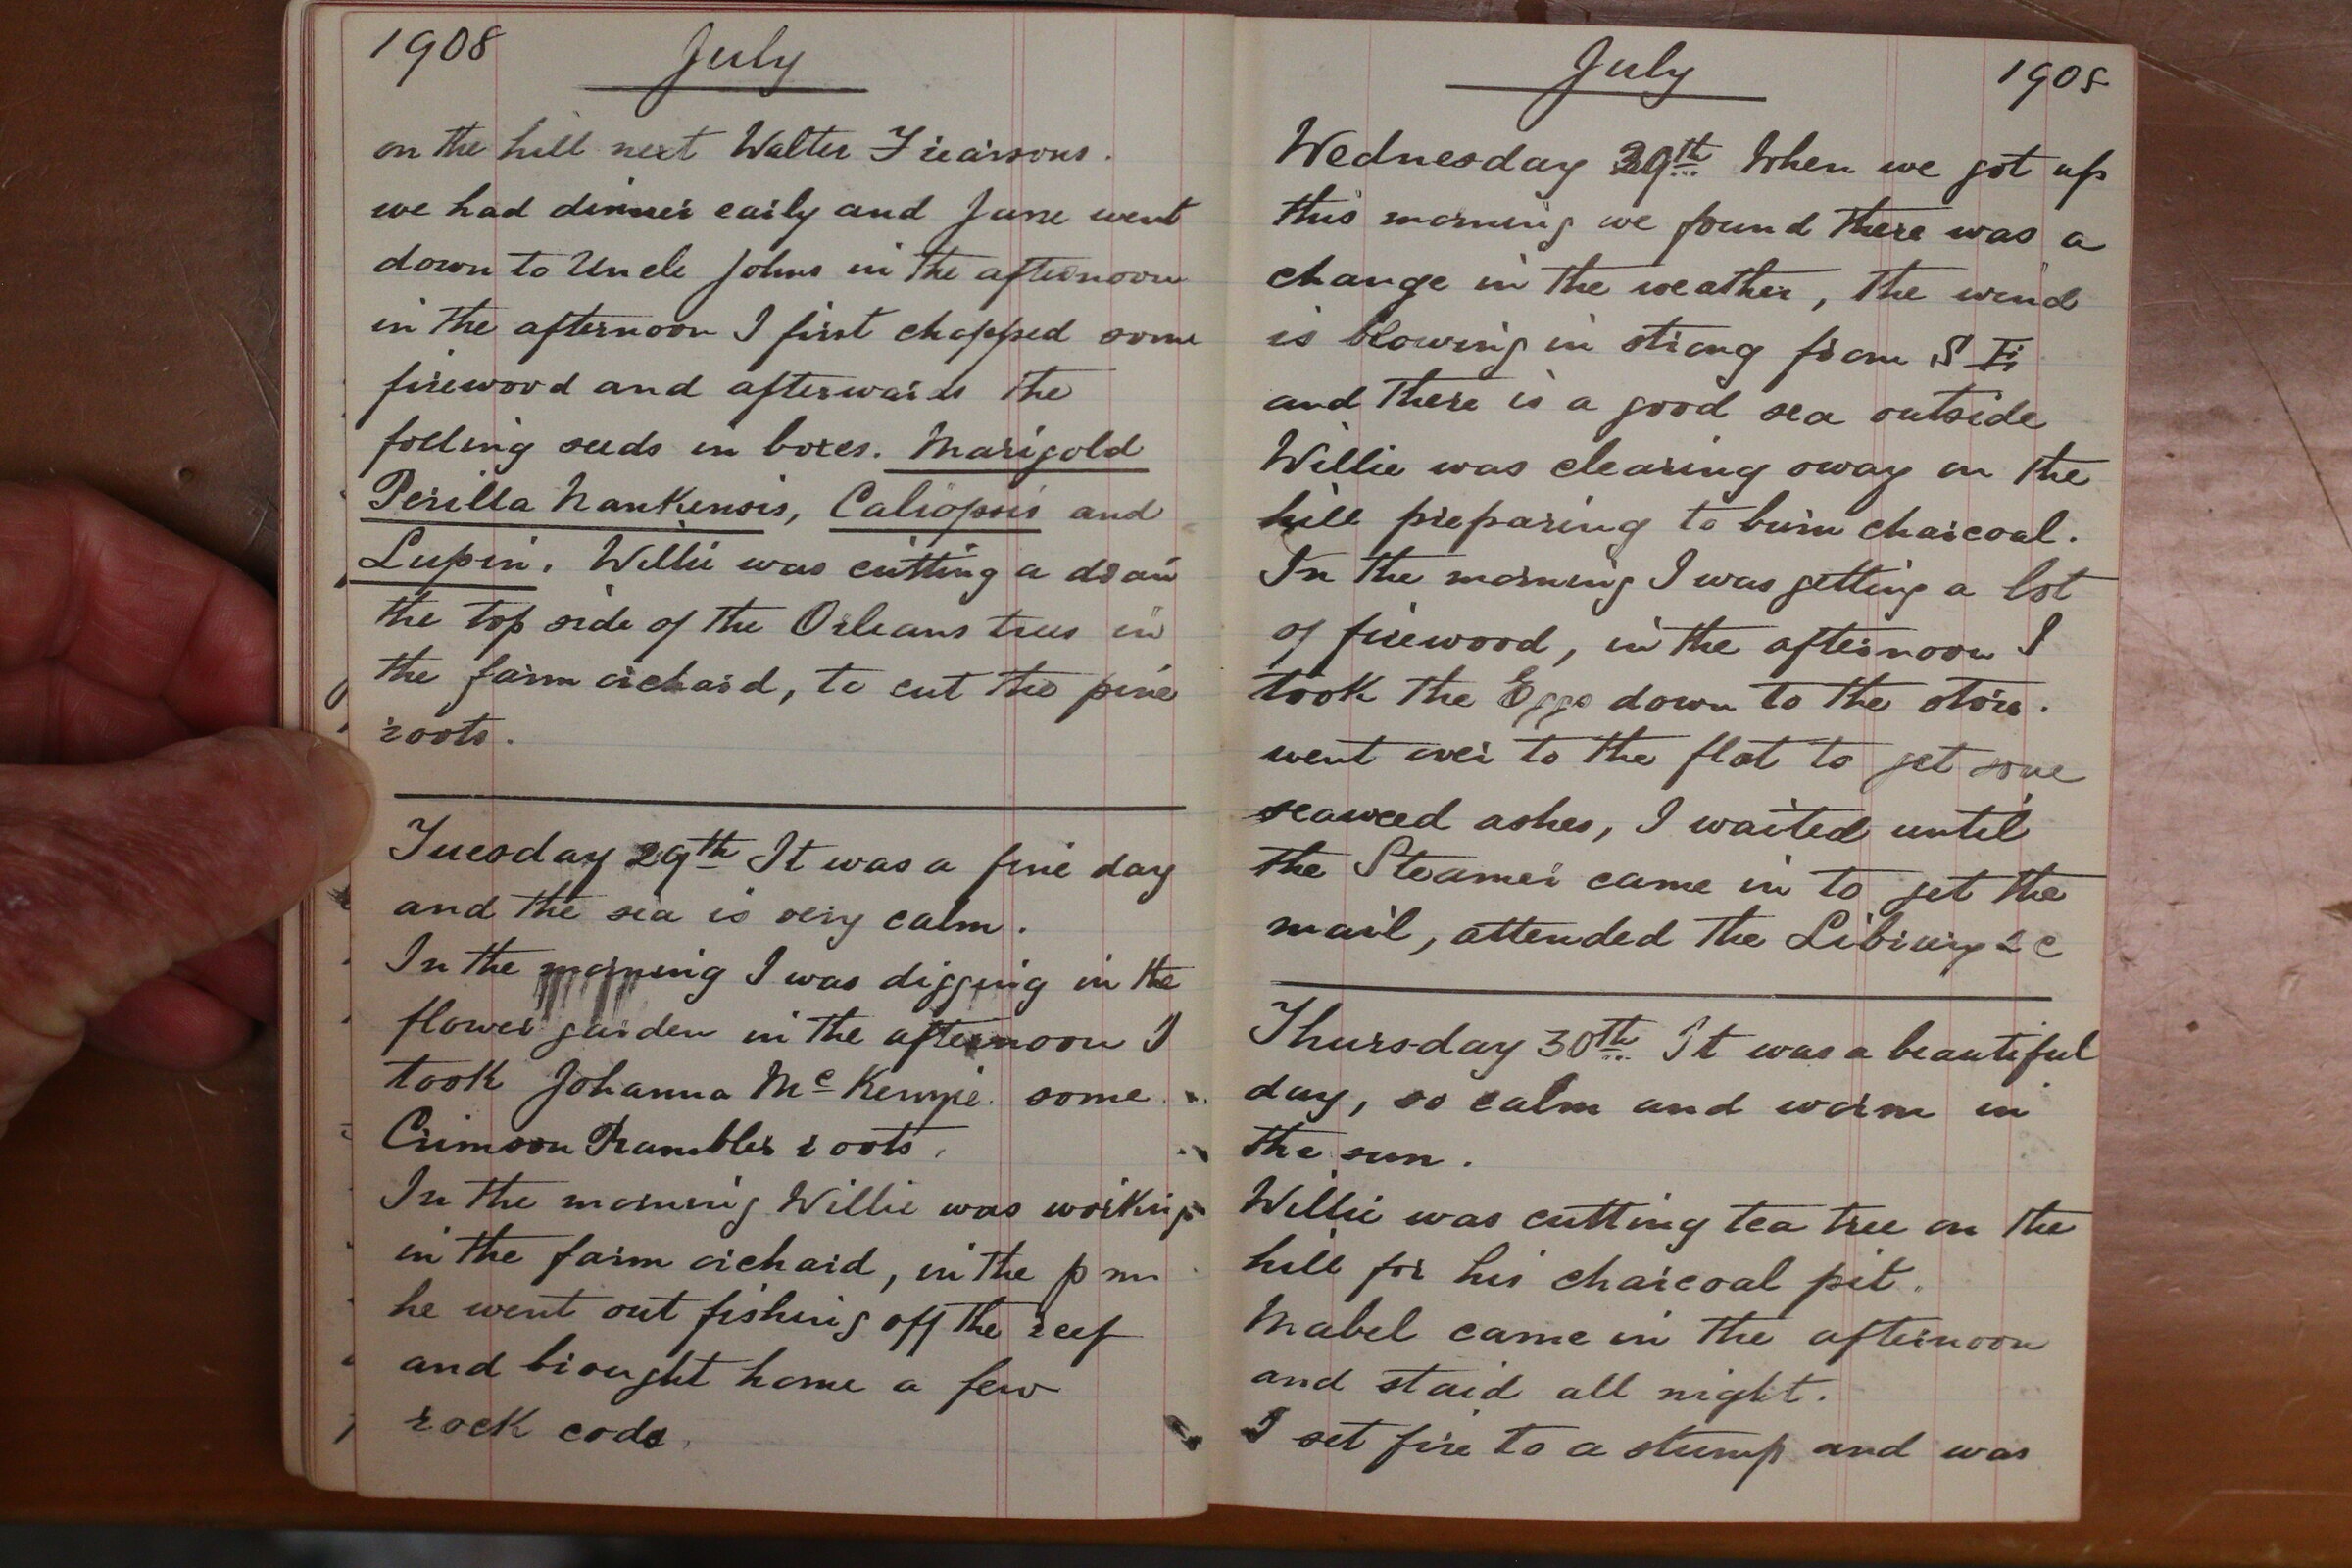 1908 July
on the hill next Walter
we had dinner early and Jane went
down to Uncle Johns in the afternoon
in the afternoon I first chopped some
firewood and afterwards the
folling seeds in boxes. Marigold
Perilla Nankensis, Caliopsis and
Lupin. Willie was cutting a drain
the top side of the Orleans trees in
the farm orchard, to cut the pine
roots.
Tuesday 29th It was a fine day
and the sea is very calm.
In the morning I was digging in the
flower garden in the afternoon I
took Johanna Mc Kenzie some
Crimson Rambler roots.
In the morning Willie was working
in the farm orchard, in the p m
he went out fishing off the reef
and brought home a few
rock cods.
July 1908
Wednesday 29th When we got up
this morning we found there was a
change in the weather, the wind
is blowing in strong from S E
and there is a good sea outside
Willie was clearing away on the
hill preparing to burn charcoal.
In the morning I was getting a lot
of firewood, in the afternoon I
took the Eggs down to the store.
went over to the flat to get some
seaweed ashes, I waited until
the Steamer came in to get the
mail, attended the Library & c
Thursday 30th It was a beautiful
day, so calm and warm in
the sun.
Willie was cutting tea tree on the
hill for his charcoal pit.
Mabel came in the afternoon
and staid all night.
I set fire to a stump and was